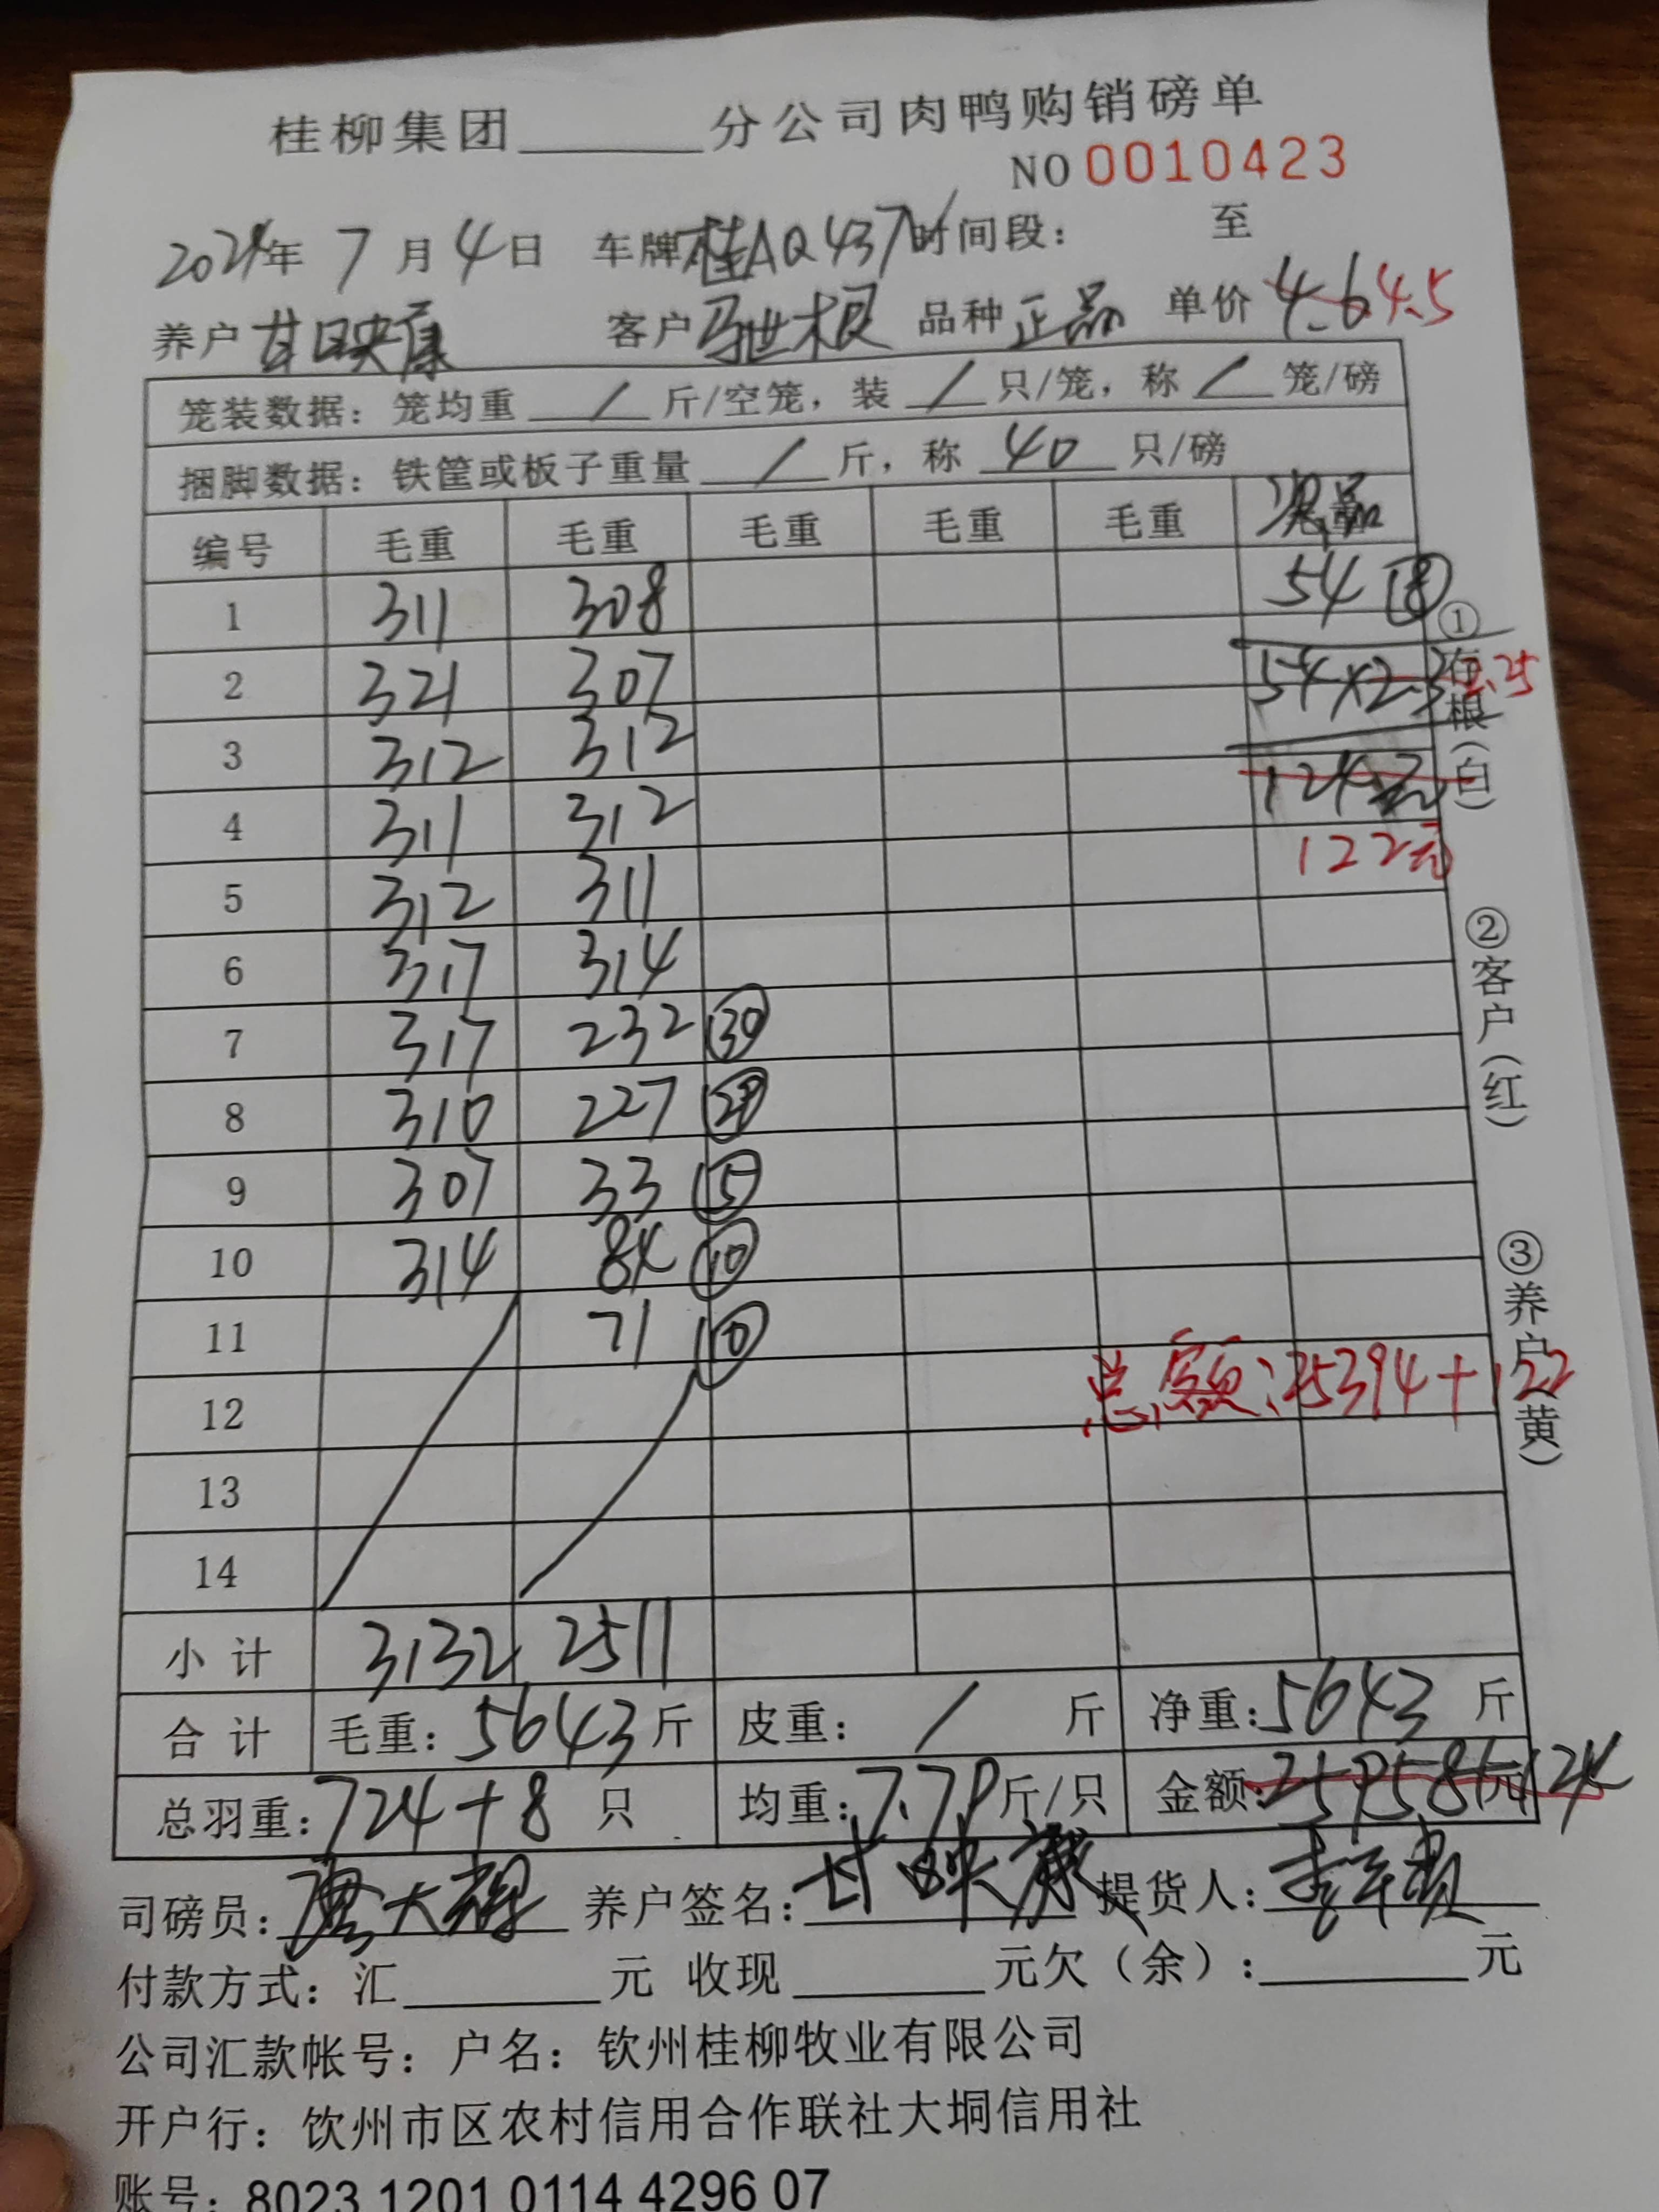 桂柳集团______分公司肉鸭购销磅单
NO 0010423
2024年 7 月 4 日 车牌 桂AQ437 时间段： 至
养户 甘映康 客户 马世根 品种 正品 单价 4.6 4.5
笼装数据：笼均重 / 斤/空笼，装 / 只/笼，称 / 笼/磅
捆脚数据：铁筐或板子重量 / 斤，称 40 只/磅
编号 毛重 毛重 毛重 毛重 毛重 次品
1 311 308 54 ⑧
2 321 307 54×2.3 2.25
3 312 312 124元
4 311 312 122元
5 312 311
6 317 314
7 317 232 ㉚
8 310 227
9 307 33 ⑤
10 314 84 ⑩
11 71 ⑩
12 总额：25394+122
13
14
小计 3132 2511
合计 毛重：5643斤 皮重：/ 斤 净重：5643 斤
总羽重：724+8 只 均重：7.79斤/只 金额：25958元124
司磅员： 养户签名：甘映康 提货人：
付款方式：汇______元 收现______元欠（余）：______元
公司汇款帐号：户名：钦州桂柳牧业有限公司
开户行：饮州市区农村信用合作联社大垌信用社
账号：8023 1201 0114 4296 07
①存根（白）
②客户（红）
③养户（黄）